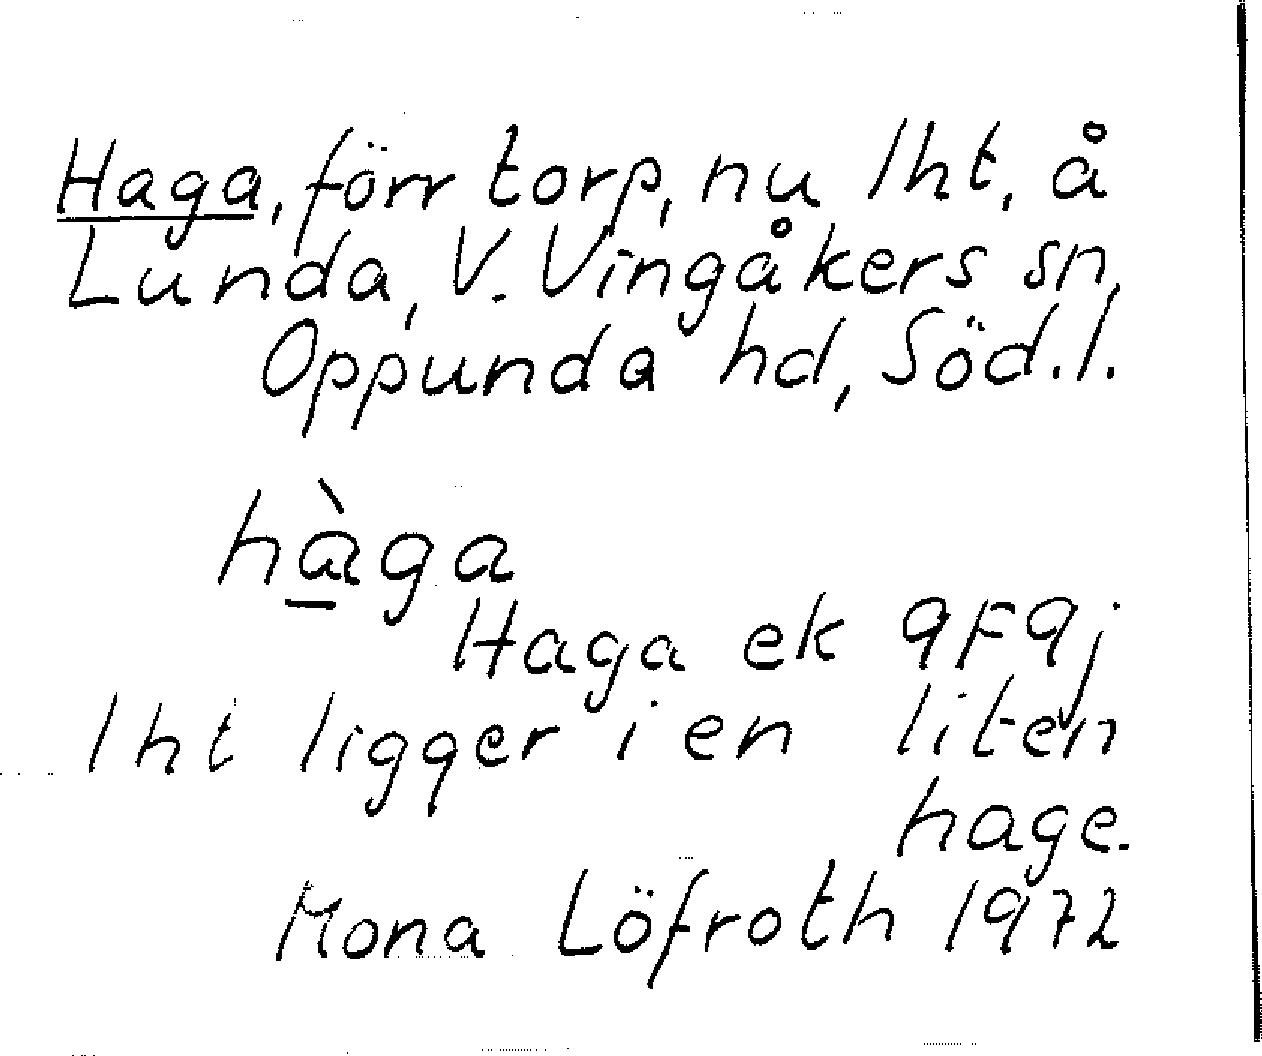 Haga, förr torp, nu lht, å
Lunda, V. Vingåkers sn,
Oppunda hd, Söd.l.
hà̱ga
Haga ek 9F9j
lht ligger i en liten
hage.
Mona Löfroth 1972